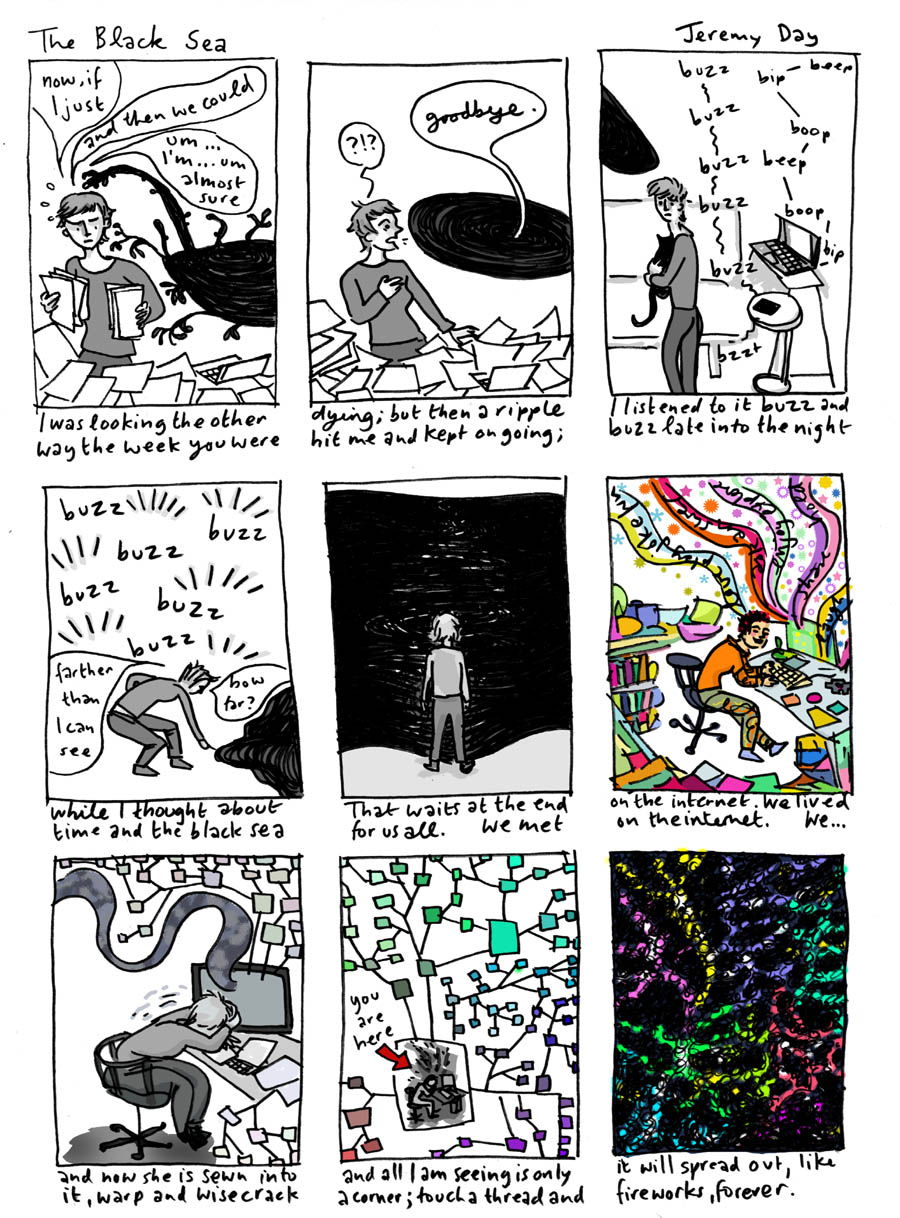 The Black Sea
Jeremy Day
now, if
I just
and then we could
um ...
I'm ... um
almost
sure
I was looking the other
way the week you were
?!?
goodbye.
dying; but then a ripple
hit me and kept on going;
buzz
buzz
buzz
buzz
buzz
bzzt
bip
beep
boop
beep
boop
bip
I listened to it buzz and
buzz late into the night
buzz
buzz
buzz
buzz
buzz
buzz
farther
than
I can
see
how
far?
while I thought about
time and the black sea
That waits at the end
for us all. We met
on the internet. We lived
on the internet. We...
and now she is sewn into
it, warp and wisecrack
you
are
here
and all I am seeing is only
a corner; touch a thread and
it will spread out, like
fireworks, forever.